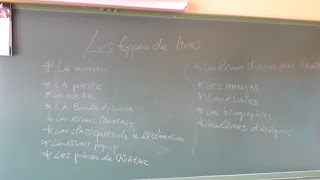 Les types de livres
* Le roman
* LA poésie
* Le conte
* LA Bande dessinée
* Les livres illustrés
* Les classiques de la littérature
* Les livres pop up
* Les pièces de théâtre
* Les livres illustrés sans texte
* Les mangas
* Les
* Les biographies
* Les livres d'énigmes